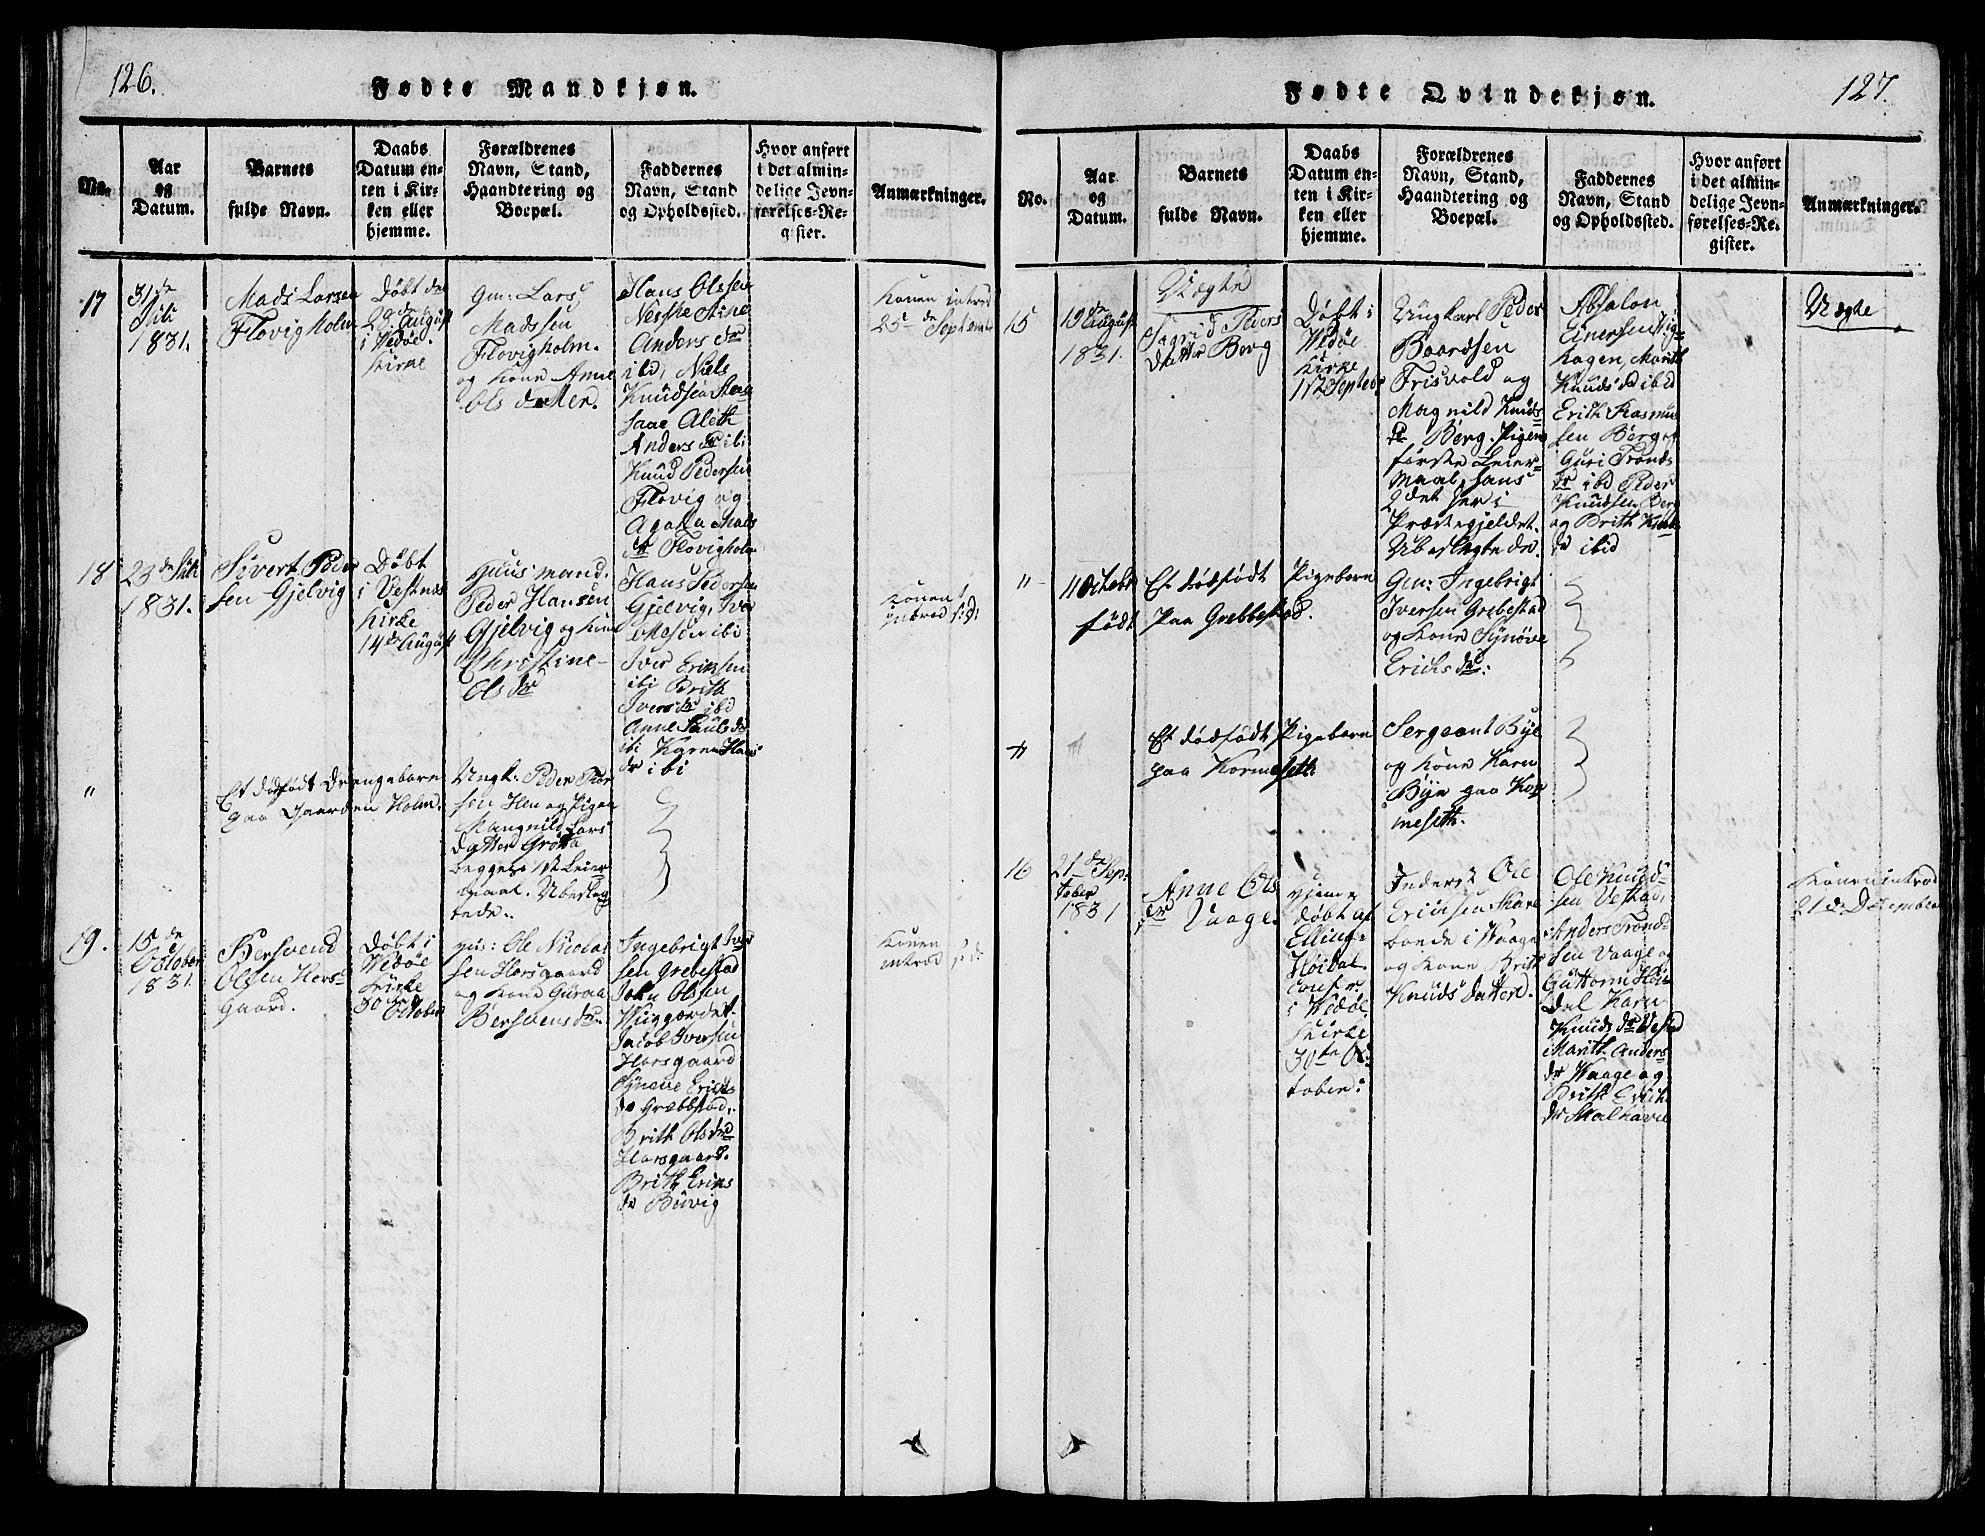 126.
Fødte Mandkjøn.
No.
Aar
og
Datum.
Barnets
fulde Navn.
Daabs
Datum en-
ten i Kir-
ken eller
hjemme.
Forældrenes
Navn, Stand,
Haandtering og
Boepæl.
Faddernes
Navn, Stand
og Opholdssted.
Hvor anført
i det almin-
delige Jevn-
førelses-Re-
gister.
Anmærkninger.
17
31de
Juli
1831.
Mads Larsen
Flovigholm
Døbt den
28de August
i Wedøe
Kirke
Gm: Lars
Madsen
Flovigholm.
og Kone Anne
Ols datter.
Hans Olssen
Anders dr
ibd, Niels
Knudsen
Aleth
Anders dr ibi
Knud Pedersen
Flovig og
Mads
dr Flovigholm
Konen introd
25de September
18
23de Juli
1831.
Sivert Peder
sen Gjelvig
Døbt
i Vestnæs
Kirke
14de August
Huusmand
Peder Hansen
Gjelvig og Kone
Christine
Ols dr
Hans Pedersen
Gjelvig, Iver
ibi
Iver Eriksen
ibi Brith
Ivers dr ibd
Anne Pauls dr
ibi Karen Hans
dr ibi
Konen
introd s: d:
"
Et dødfødt Drengebarn
paa Gaarden Holm.
Ungk: Peder
sen Hen og Pigen
Mangnild Lars
datter Grøtta
begges 1ste Leier
maal. Ubeslæg
tede.
19.
15de
October
1831.
Bersvend
Olsen Hors-
gaard.
Døbt i
Wedøe
Kirke
30te
October
Gm: Ole Nicolai
sen Horsgaard
og Kone Guroa
Bersvens dr.
Ingebrigt Iver
sen Grebestad
John Olssen
Jacob Iversen
Horsgaard
Synøve Erichs
dr Græbbstad,
Brith Ols dr
Horsgaard.
Brith Eriks
dr Buvig
Konen
introd s: d:
127.
Fødte Qvindekjøn.
No.
Aar
og
Datum.
Barnets
fulde Navn.
Daabs
Datum en-
ten i Kir-
ken eller
hjemme.
Forældrenes
Navn, Stand,
Haandtering og
Boepæl.
Faddernes
Navn, Stand
og Opholdssted.
Hvor anført
i det almin-
delige Jevn-
førelses-Re-
gister.
Anmærkninger.
15
19de
August
1831.
Uægte
Sigrid Peders
datter Berg
Døbt i
Wedøe
Kirke
11te September
Ungkarl Peder
Baardsen
Frisvold og
Magnild Knuds
dr Berg. Pigens
første Leier-
maal, hans
2det her i
Præstegjeldet.
Ubeslægtede.
Absalon
Einersen
hagen, Marith
Knuds dr ibid
Erith Rasmus
sen Berg og
Guri Tronds
dr ibd Peder
Knudsen Berg
og Brith Knuds
dr ibid
Uægte
"
11 October
født
Et dødfødt Pigebarn
paa Grebbestad.
Gm: Ingebrigt
Iversen Grebestad
og Kone Synøve
Erichs dr:
"
Et dødfødt Pigebarn
paa Kormeseth
Sergeant Bye
og Kone Karn
Bye paa Kor
meseth.
16
21de Sep-
tober
1831
Anne Ols
dr Vaage.
hjeme
døbt af
Elling
Høidal
conf:
i Wedøe
Kirke
30te Oc
tober:
Inderst Ole
Erichsen Skare
boende i Waage
og Kone Brith
Knuds datter.
Ole Knud
sen Vestad,
Anders Trond
sen Vaage og
Guttorm Høi
dal Karn
Knuds dr Vestad
Marith Anders
dr Waage og
Brith Erich
dr Skalhavn
Konen introd
21de December